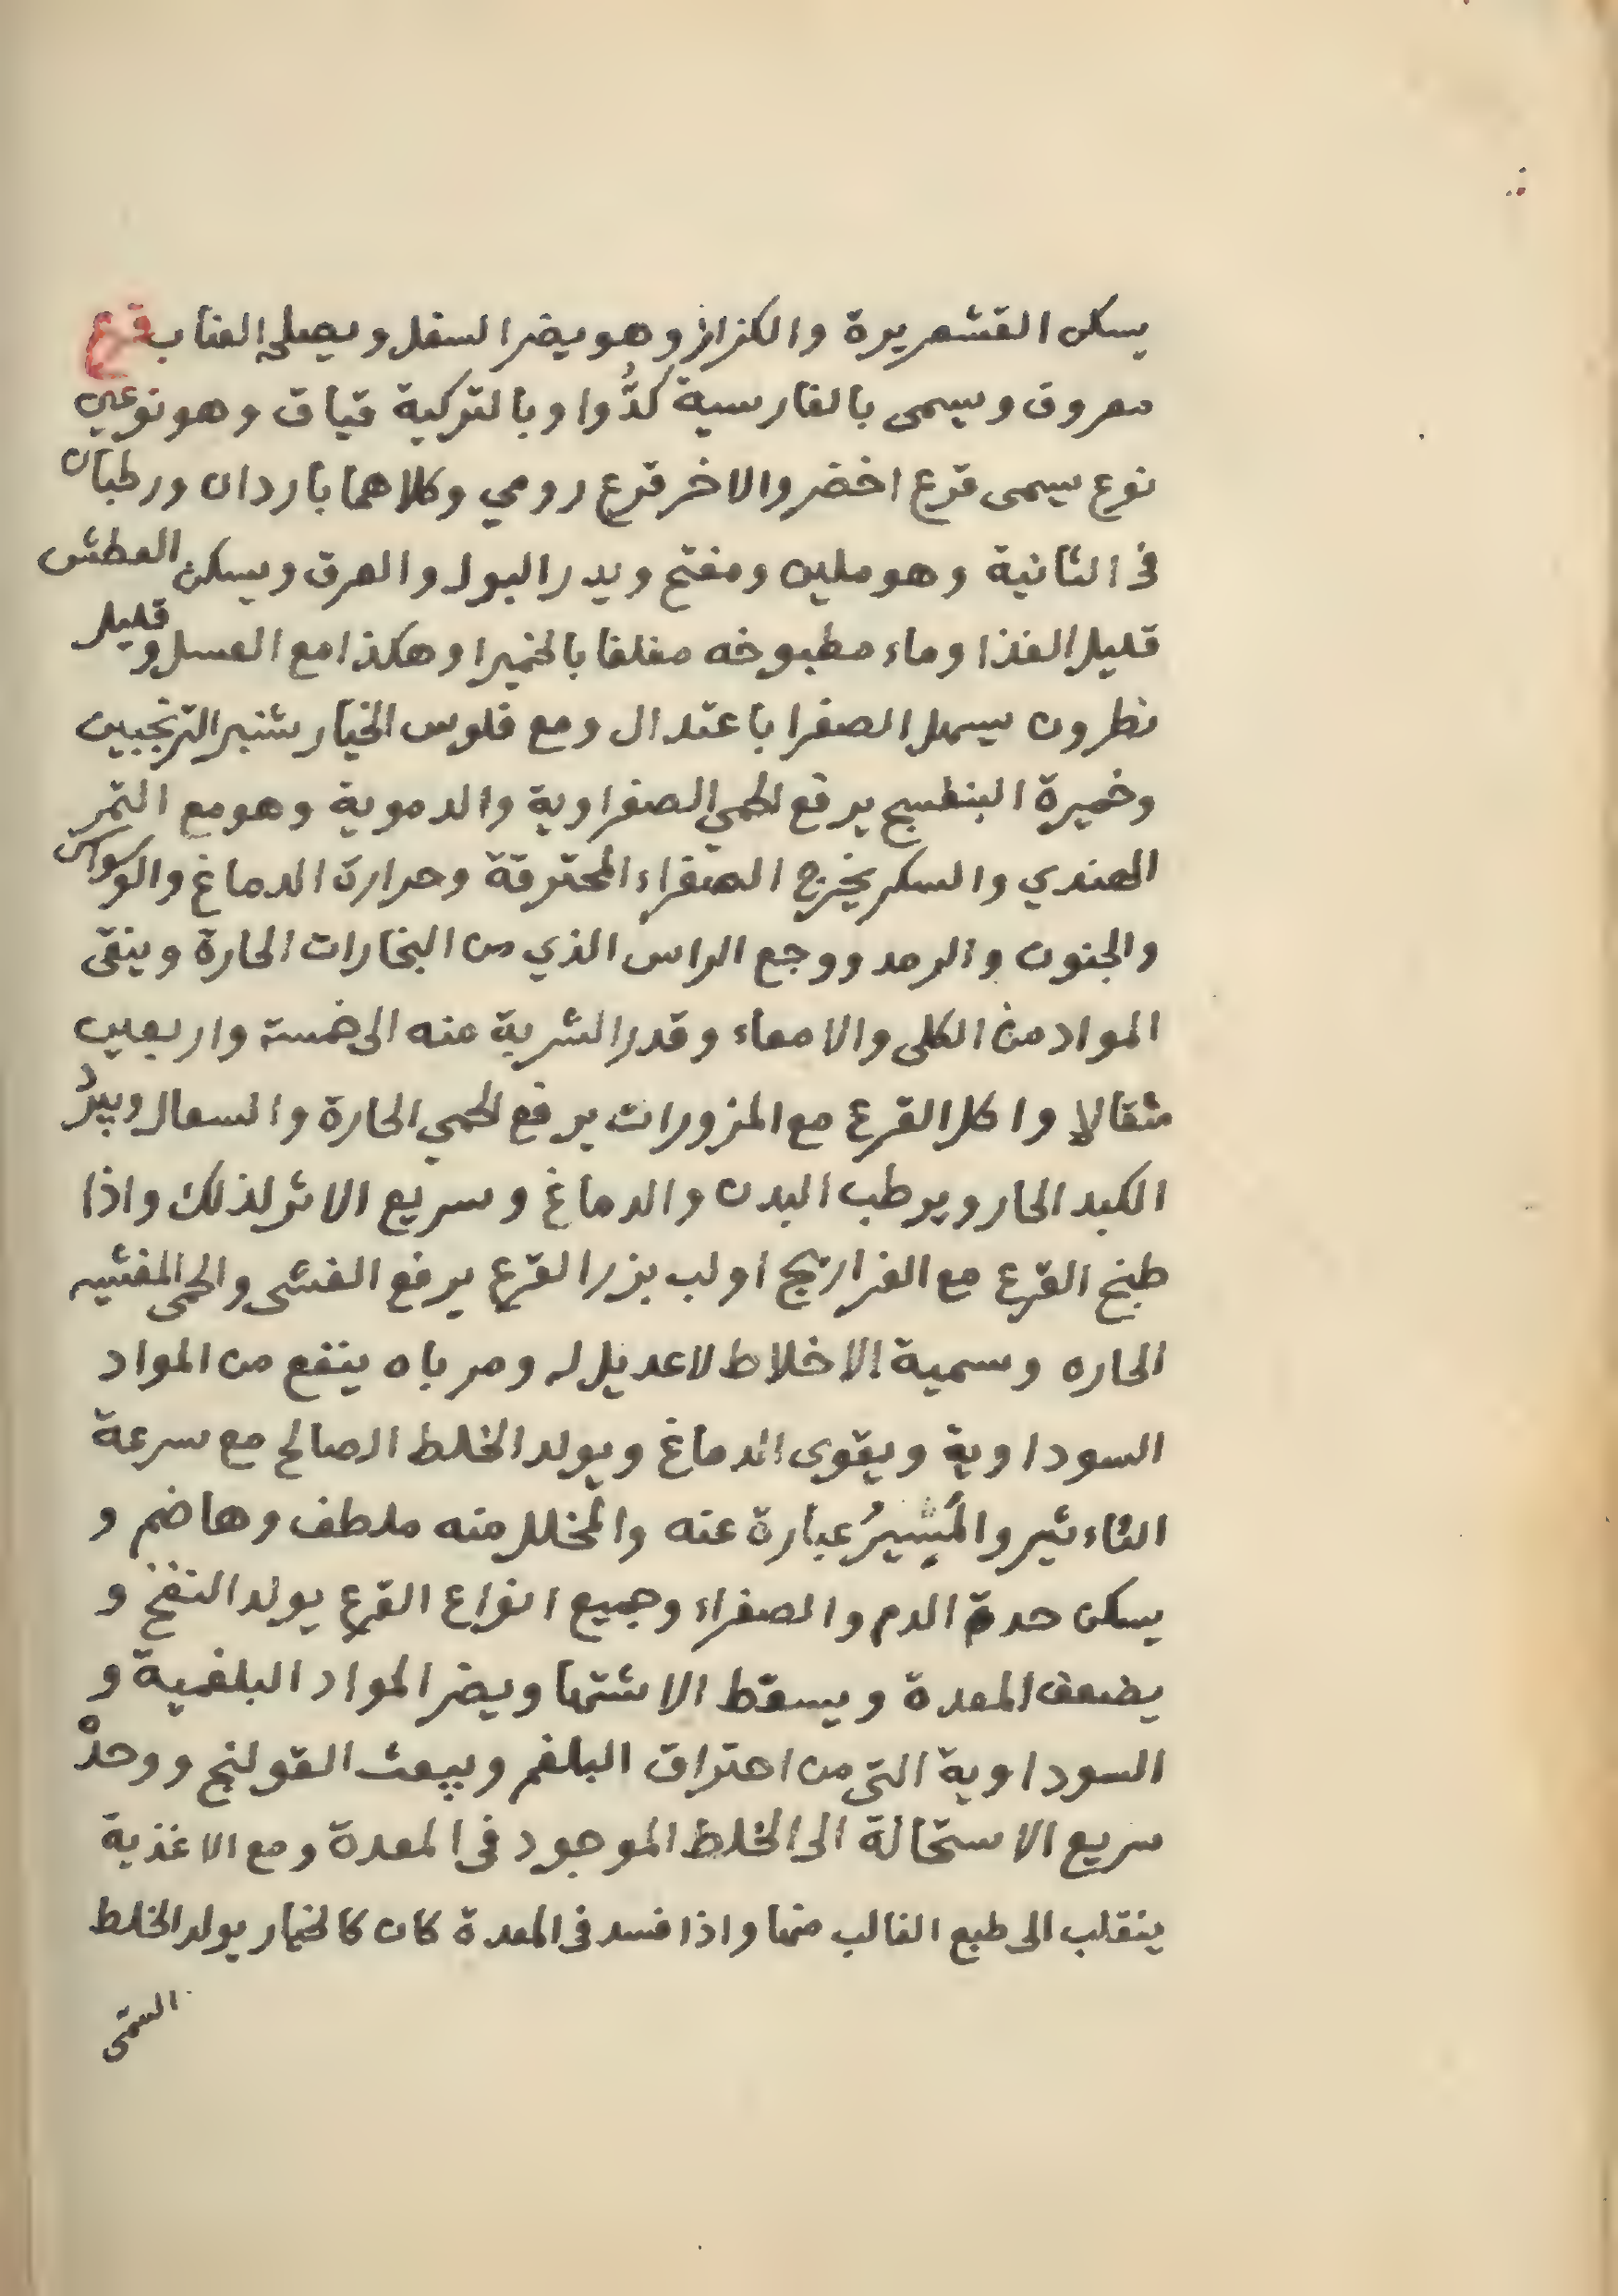 يسكن القشعريرة والكزاز وهو يضر السفل ويصلح العناب قرع
معروف ويسمى بالفارسية كدُّوا وبالتركية قباق وهو نوعين
نوع يسمى قرع اخضر والاخر قرع رومي وكلاهما باردان ورطبان
فى الثانية وهو ملين ومفتح ويدر البول والعرق ويسكن العطش
قليل الغذا وماء مطبوخه مغلفا بالخمير او هكذا مع العسل وقليل
نطرون يسهل الصفرا باعتدال ومع فلوس الخيارشنبر الترنجبين
وخميرة البنفسج يرفع الحمي الصفراوية والدموية وهو مع التمر
الهندي والسكر يخرج الصفراء المحترقة وحرارة الدماغ والوسواس
والجنون والرمد ووجع الراس الذي من البخارات الحارة وينقى
المواد من الكلى والامعاء وقدر الشربة منه الى خمسة واربعين
مثقالا واكل القرع مع المزورات يرفع الحمي الحارة والسعال ويبردُ
الكبد الحار ويرطب البدن والدماغ وسريع الاثر لذلك واذا
طبخ القرع مع الفراريج او لب بزر القرع يرفع الغشى والحمى المغشيه
الحاره وسمية الاخلاط لا عديل له ومرباه ينفع من المواد
السوداوية ويقوى الدماغ ويولد الخلط الصالح مع سرعة
التاءثير والمُشيرُ عبارة عنه والمخلل منه ملطف وهاضم و
يسكن حدة الدم والصفراء وجميع انواع القرع يولد النفخ و
يضعف المعدة ويسقط الاشتها ويضر المواد البلغمية و
السوداوية التى من احتراق البلغم ويبعث القولنج ووحدْ
سريع الاستحالة الى الخلط الموجود فى المعدة ومع الاغذية
ينقلب الى طبع الغالب منها واذا فسد فى المعدة كان كالخيار يولد الخلط
السمى